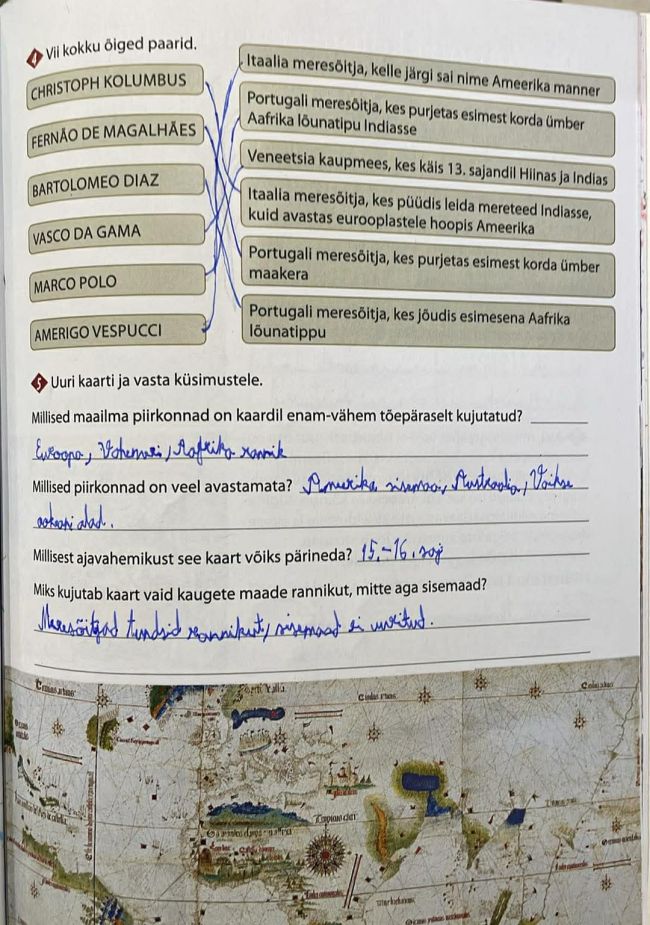 4 Vii kokku õiged paarid.
CHRISTOPH KOLUMBUS
FERNÃO DE MAGALHÃES
BARTOLOMEO DIAZ
VASCO DA GAMA
MARCO POLO
AMERIGO VESPUCCI
Itaalia meresõitja, kelle järgi sai nime Ameerika manner
Portugali meresõitja, kes purjetas esimest korda ümber
Aafrika lõunatipu Indiasse
Veneetsia kaupmees, kes käis 13. sajandil Hiinas ja Indias
Itaalia meresõitja, kes püüdis leida mereteed Indiasse,
kuid avastas eurooplastele hoopis Ameerika
Portugali meresõitja, kes purjetas esimest korda ümber
maakera
Portugali meresõitja, kes jõudis esimesena Aafrika
lõunatippu
5 Uuri kaarti ja vasta küsimustele.
Millised maailma piirkonnad on kaardil enam-vähem tõepäraselt kujutatud?
Euroopa, Vahemeri, Aafrika rannik
Millised piirkonnad on veel avastamata? Ameerika sisemaa, Austraalia, Vaikse
ookeani alad.
Millisest ajavahemikust see kaart võiks pärineda? 15.-16. saj
Miks kujutab kaart vaid kaugete maade rannikut, mitte aga sisemaad?
Meresõitjad tundsid rannikut, sisemaad ei uuritud.